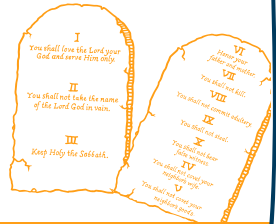 I
You shall love the Lord your
God and serve Him only.
II
You shall not take the name
of the Lord God in vain.
III
Keep Holy the Sabbath.
VI
Honor your
father and mother.
VII
You shall not kill.
VIII
You shall not commit adultery.
IX
You shall not steal.
X
You shall not bear
false witness.
IV
You shall not covet your
neighbors wife.
V
You shall not covet your
neighbors goods.